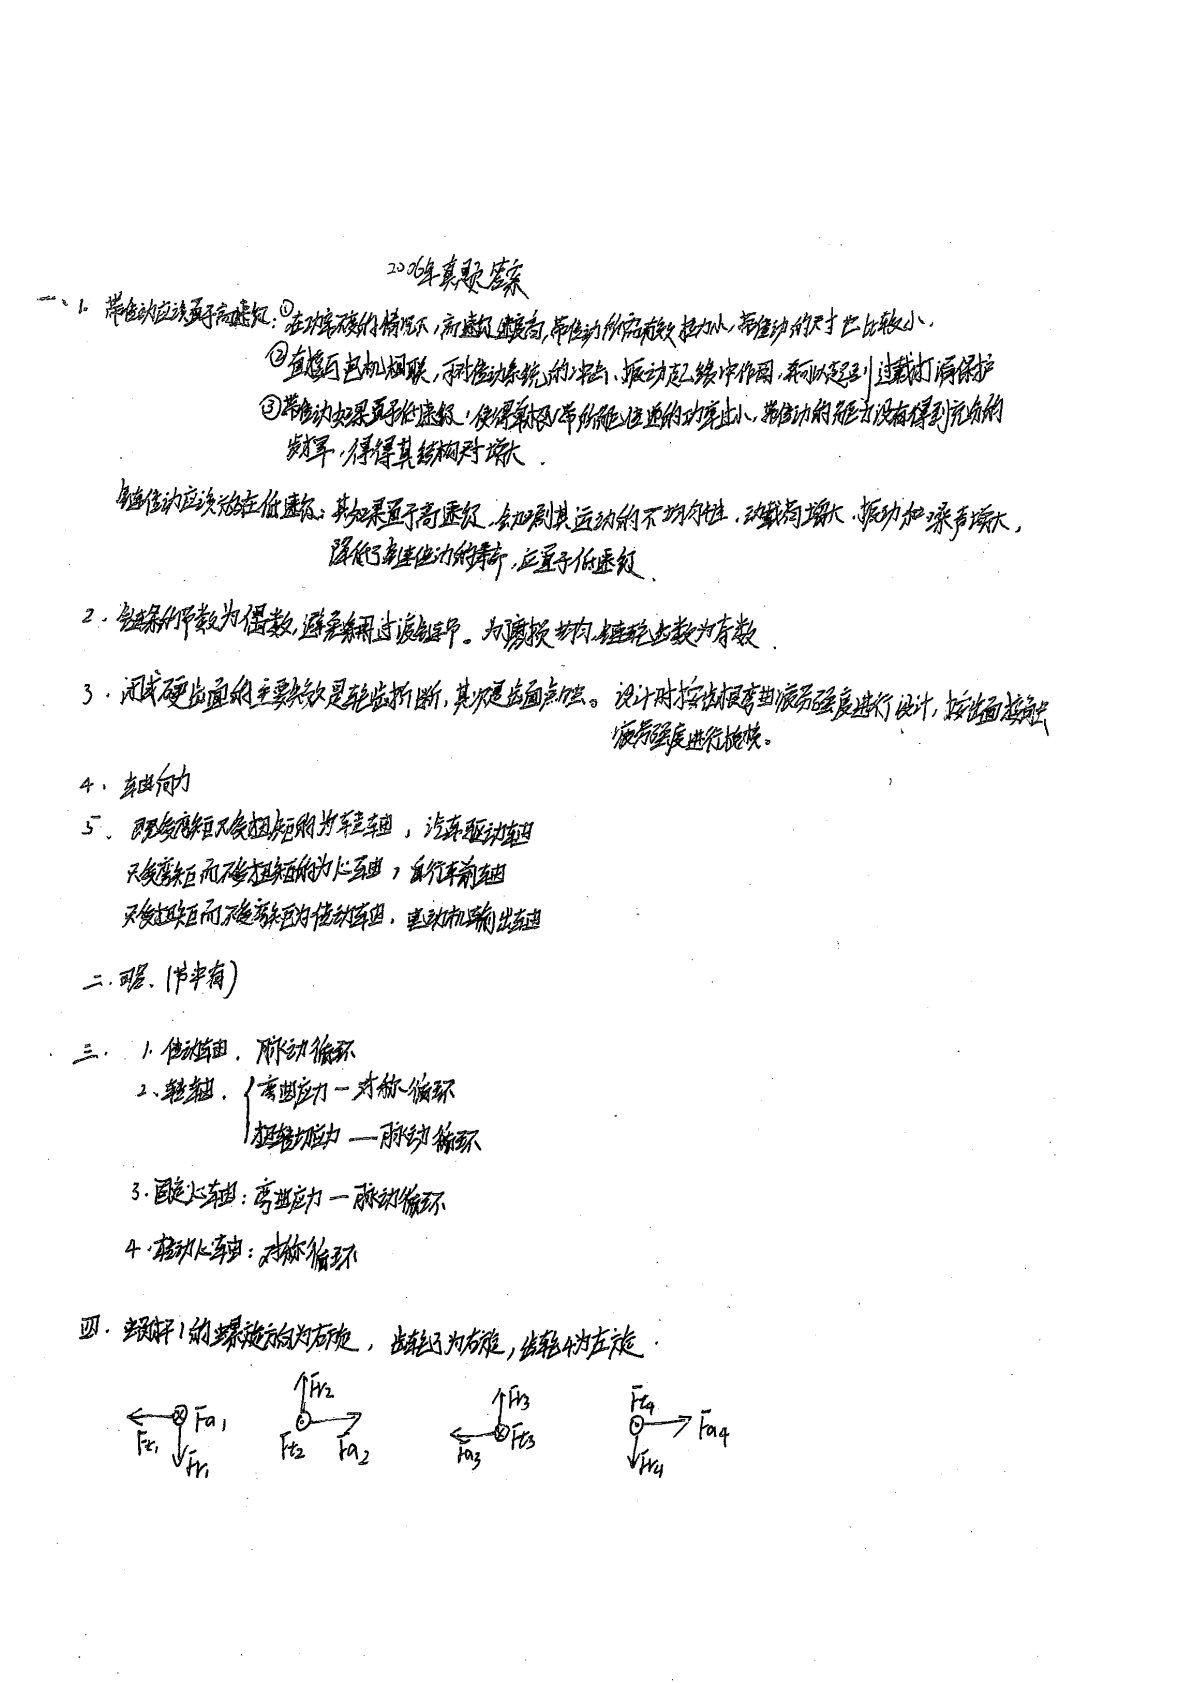 2006年真题答案
一、1. 带传动应该置于高速级:①在功率不变的情况下,高速级速度高,带传动所需有效拉力小,带传动的尺寸也比较小.
②直接与电机相联,可对传动系统的冲击、振动起缓冲作用,并可以起到过载打滑保护
③带传动如果置于低速级,使得单根V带所能传递的功率过小,带传动的能力没有得到充分的
发挥,使得其结构尺寸增大.
链传动应该放在低速级:其如果置于高速级,会加剧其运动的不均匀性,动载荷增大,振动和噪声增大,
降低了链传动的寿命,应置于低速级.
2. 链条的节数为偶数,避免采用过渡链节。为磨损均匀,链轮齿数为奇数.
3. 闭式硬齿面的主要失效是轮齿折断,其次是齿面点蚀。设计时按齿根弯曲疲劳强度进行设计,按齿面接触
疲劳强度进行校核。
4、轴向力
5、既受弯矩又受扭矩的为转轴,汽车驱动轴
只受弯矩而不受扭矩的为心轴,自行车前轴
只受扭矩而不受弯矩为传动轴,电动机输出轴
二.问答.(书中有)
三. 1.传动轴.脉动循环
2、转轴.{弯曲应力—对称循环
扭转切应力—脉动循环
3.固定心轴:弯曲应力—脉动循环
4.转动心轴:对称循环
四. 蜗杆1的螺旋方向为右旋,齿轮3为右旋,齿轮4为左旋.
Fr2 Fr3 Ft4
Fa1 Fa4
Ft1 Fr1 Ft2 Fa2 Fa3 Ft3 Fr4